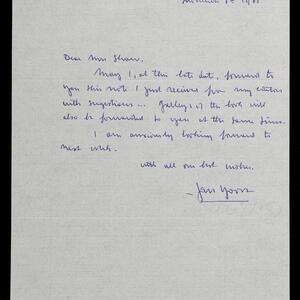 Dear Mrs Shaw.
May I, at this late date, forward to
you this note I just received from my editors
with suggestions... Galleys of the book will
also be forwarded to you at the same time.
I am anxiously looking forward to
next week.
with all our best wishes.
- Jan Yoors